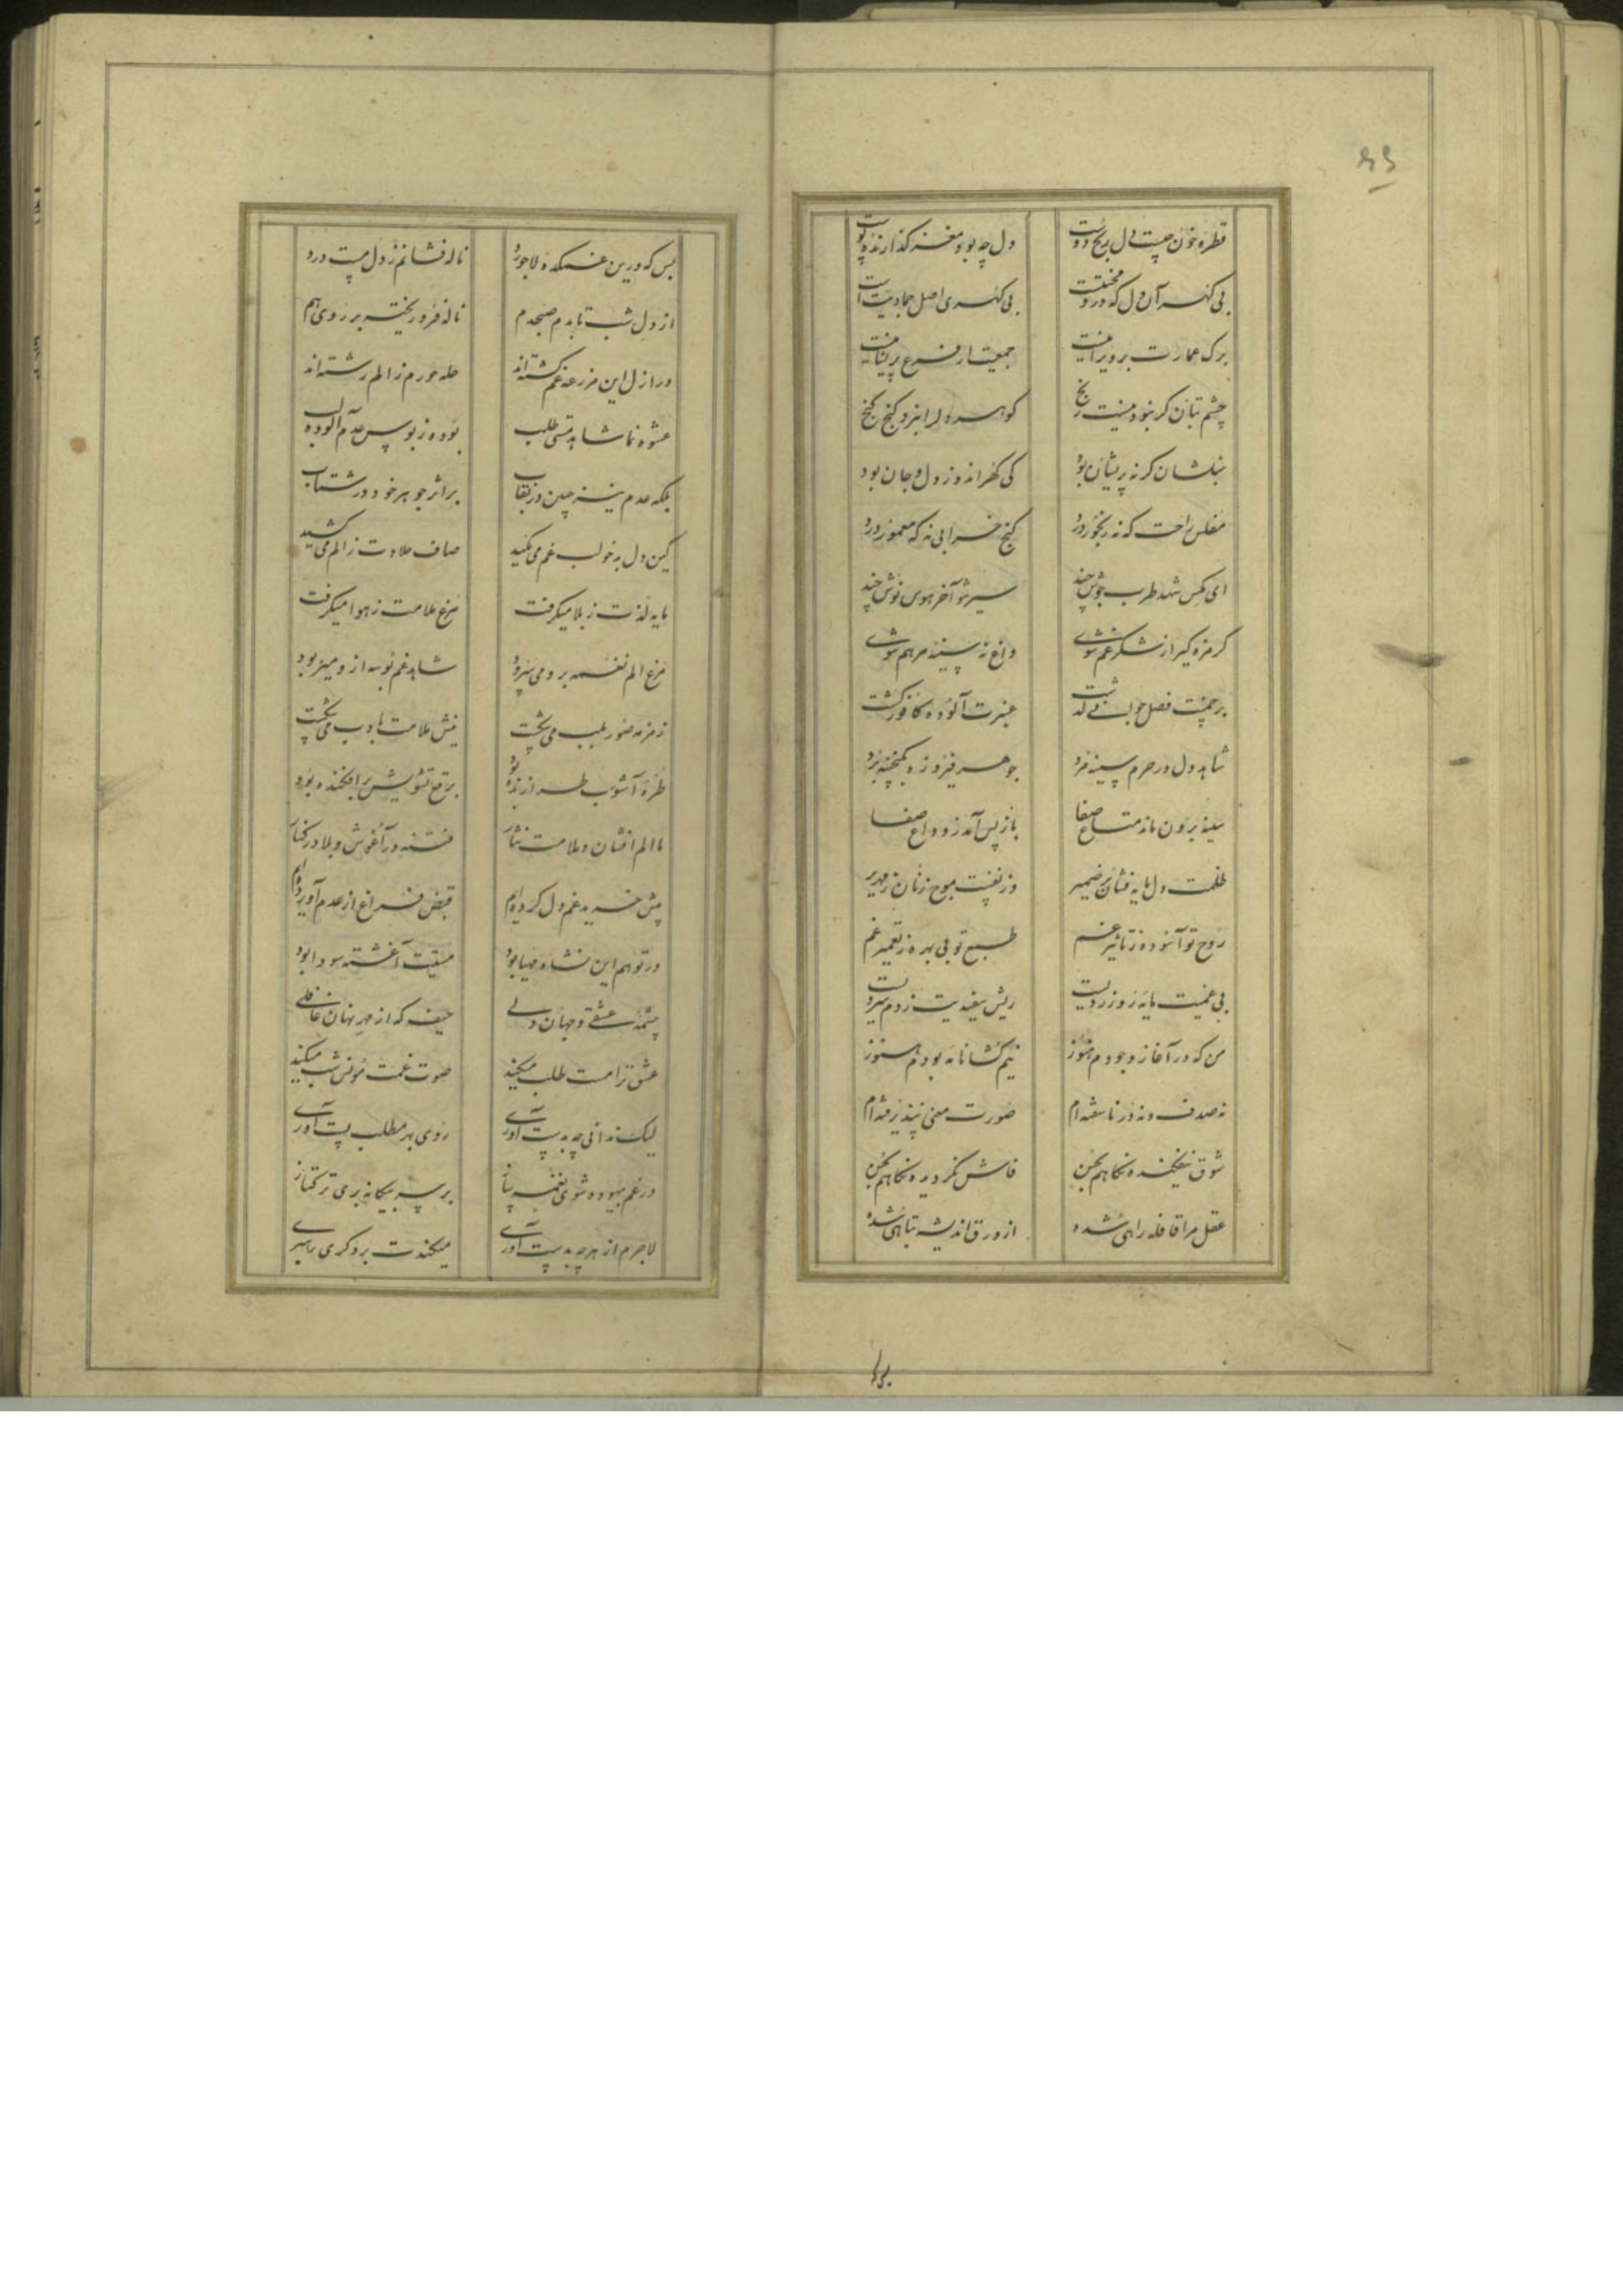 ۶۶
قطره خون چیست دل رنج دوست
دل چه بود مغز گدازنده پوست
بی گهر آن دل که درو محنتیست
بی گهری اصل جمادیت است
برک عمارت بر ویرانیست
جمعیت از فرع پریشانیست
چشم بتان گر نبود نیست رنج
گوهر دل را نبرد کنج گنج
بنگشان گر نه پریشان بود
کی گهر اندوز دل و جان بود
مفلس راحت که نه رنجور درد
کنج خرابی نه که معمور درد
ای مگس شهد طرب جوش چند
سیر شو آخر هوس نوش چند
گر مزه گیر از شکر غم شوی
داغ نه سینه مرهم شوی
بر چمنت فصل جوانی گذشت
عنبرت آلوده کافور گشت
شاهد دل در حرم سینه مرد
جوهر فیروزه گنجینه برد
سینه برون ماند متاع صفا
باز پس آمد ز وداع صفا
ظلمت دل مایه فشان بر ضمیر
وز نفست موج زنان زمهریر
روح تو آسوده ز تاثیر غم
طبع تو بی بهره ز تعمیر غم
بی غمیت مایه روز زردیست
ریش سفیدیت ز دم سردیست
من که در آغاز وجودم هنوز
نیم گشا نامه بودم هنوز
نه صدف و نه در ناسفته ام
صورت معنی نپذیرفته ام
شوق نیفکنده نگاهم بحسن
فاش نگردیده نگاهم بحسن
عقل مرا قافله راهی شده
از ورق اندیشه تباهی شده
بس که درین غمکده لاجورد
ناله فشانم ز دل مست درد
از دل شب تا بدم صبحدم
ناله فرو ریخته بر روی هم
در ازل این مزرعه غم کشته اند
حله حورم ز الم رشته اند
عشوه نما شاهد هستی طلب
بوده ز بوس عدم آلوده لب
بلکه عدم نیز چنین در نقاب
بر اثر جوهر خود در شتاب
کین دل به خون لب غم می مکید
صاف حلاوت ز الم می کشید
مایه لذت ز بلا میگرفت
مرغ ملامت ز هوا میگرفت
مرغ الم نغمه برو می سرود
شاهد غم بوسه ازو میربود
نیش ملامت بادب می شکست
طره آشوب طرازنده بود
برقع تشویش برافکنده بود
ما الم افشان و ملامت نثار
فتنه در آغوش و بلا در کنار
پیش خرید غم دل کرده ایم
قبض فراغ از عدم آورده ایم
در تو هم این نشاء مهیا بود
مستیت آغشته سودا بود
چشمه عشقی و جهان دلی
حیف که از مهر نهان غافلی
عشق ترا مست طلب میکند
صوت غمت مونس شب میکند
لیک ندانی چه بدست آوری
روی بهر مطلب پست آوری
در غم بیهوده شوی نغمه ساز
بر سر بیگانه بری ترکتاز
لاجرم از هر چه بدست آوری
میکندت بر دگری رهبری